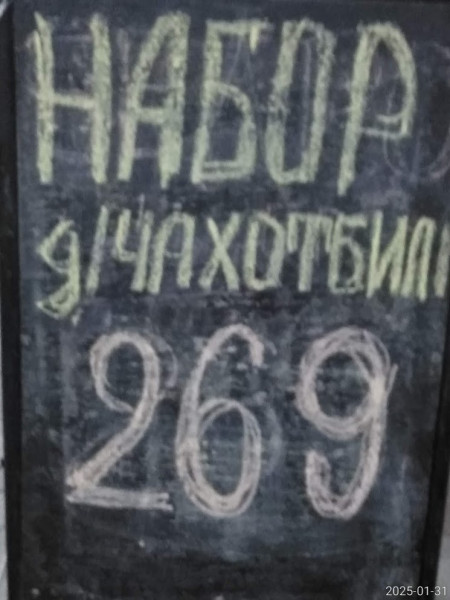 НАБОР
д/ЧАХОТБИЛИ
269
2025-01-31